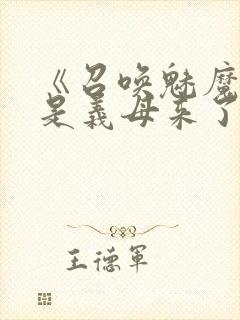 《召唤魅魔
是義母来了
王德軍